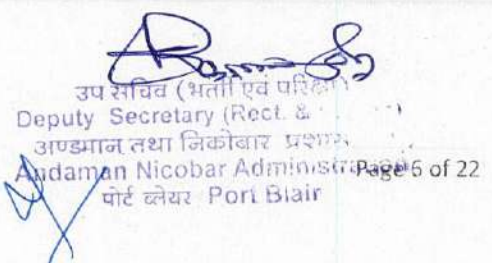 उप सचिव (भर्ती एवं
Deputy Secretary (Rect. &
अण्डमान तथा निकोबार
Andaman Nicobar Page 6 of 22
पोर्ट ब्लेयर Port Blair